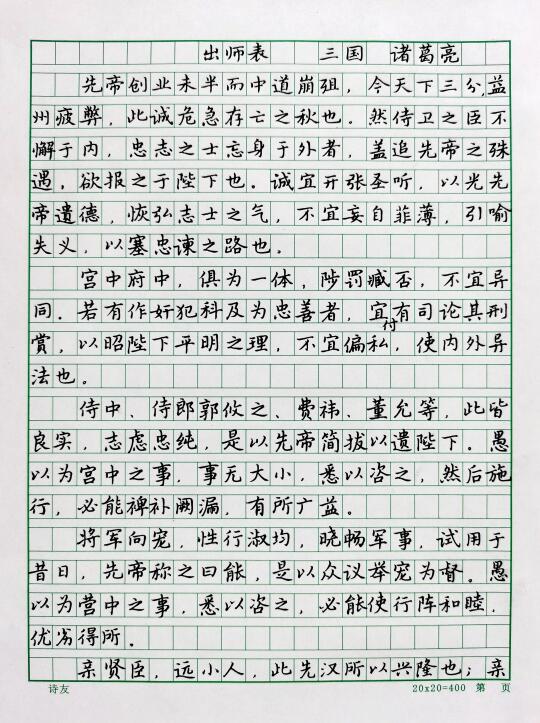 出师表 三国 诸葛亮
先帝创业未半而中道崩殂，今天下三分，益
州疲弊，此诚危急存亡之秋也。然侍卫之臣不
懈于内，忠志之士忘身于外者，盖追先帝之殊
遇，欲报之于陛下也。诚宜开张圣听，以光先
帝遗德，恢弘志士之气，不宜妄自菲薄，引喻
失义，以塞忠谏之路也。
宫中府中，俱为一体，陟罚臧否，不宜异
同。若有作奸犯科及为忠善者，宜付有司论其刑
赏，以昭陛下平明之理，不宜偏私，使内外异
法也。
侍中、侍郎郭攸之、费祎、董允等，此皆
良实，志虑忠纯，是以先帝简拔以遗陛下。愚
以为宫中之事，事无大小，悉以咨之，然后施
行，必能裨补阙漏，有所广益。
将军向宠，性行淑均，晓畅军事，试用于
昔日，先帝称之曰能，是以众议举宠为督。愚
以为营中之事，悉以咨之，必能使行阵和睦，
优劣得所。
亲贤臣，远小人，此先汉所以兴隆也；亲
诗友 20x20=400 第 页